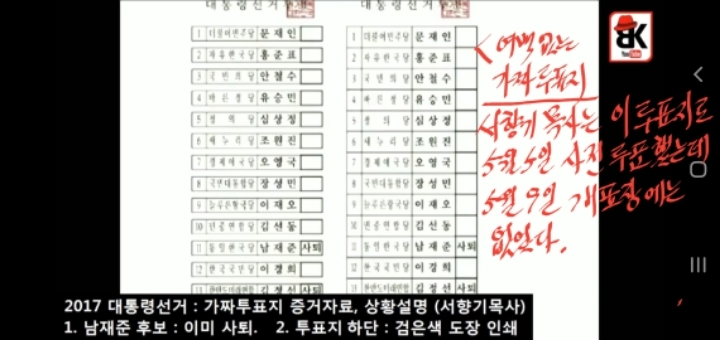 대통령선거투표
대통령선거투표
1 더불어민주당 문재인
2 자유한국당 홍준표
3 국민의당 안철수
4 바른정당 유승민
5 정의당 심상정
6 새누리당 조원진
7 경제애국당 오영국
8 국민대통합당 장성민
9 늘푸른한국당 이재오
10 민중연합당 김선동
11 통일한국당 남재준 사퇴
12 한국국민당 이경희
13 한반도미래연합 김정선 사퇴
1 더불어민주당 문재인
2 자유한국당 홍준표
3 국민의당 안철수
4 바른정당 유승민
5 정의당 심상정
6 새누리당 조원진
7 경제애국당 오영국
8 국민대통합당 장성민
9 늘푸른한국당 이재오
10 민중연합당 김선동
11 통일한국당 남재준 사퇴
12 한국국민당 이경희
13 한반도미래연합 김정선 사퇴
< 여백 없는
가짜투표지
서향기 목사는 이 투표지로
5월 5일 사전투표 했는데
5월 9일 개표장에는
없었다.
BK
YouTube
2017 대통령선거 : 가짜투표지 증거자료, 상황설명 (서향기목사)
1. 남재준 후보 : 이미 사퇴. 2. 투표지 하단 : 검은색 도장 인쇄